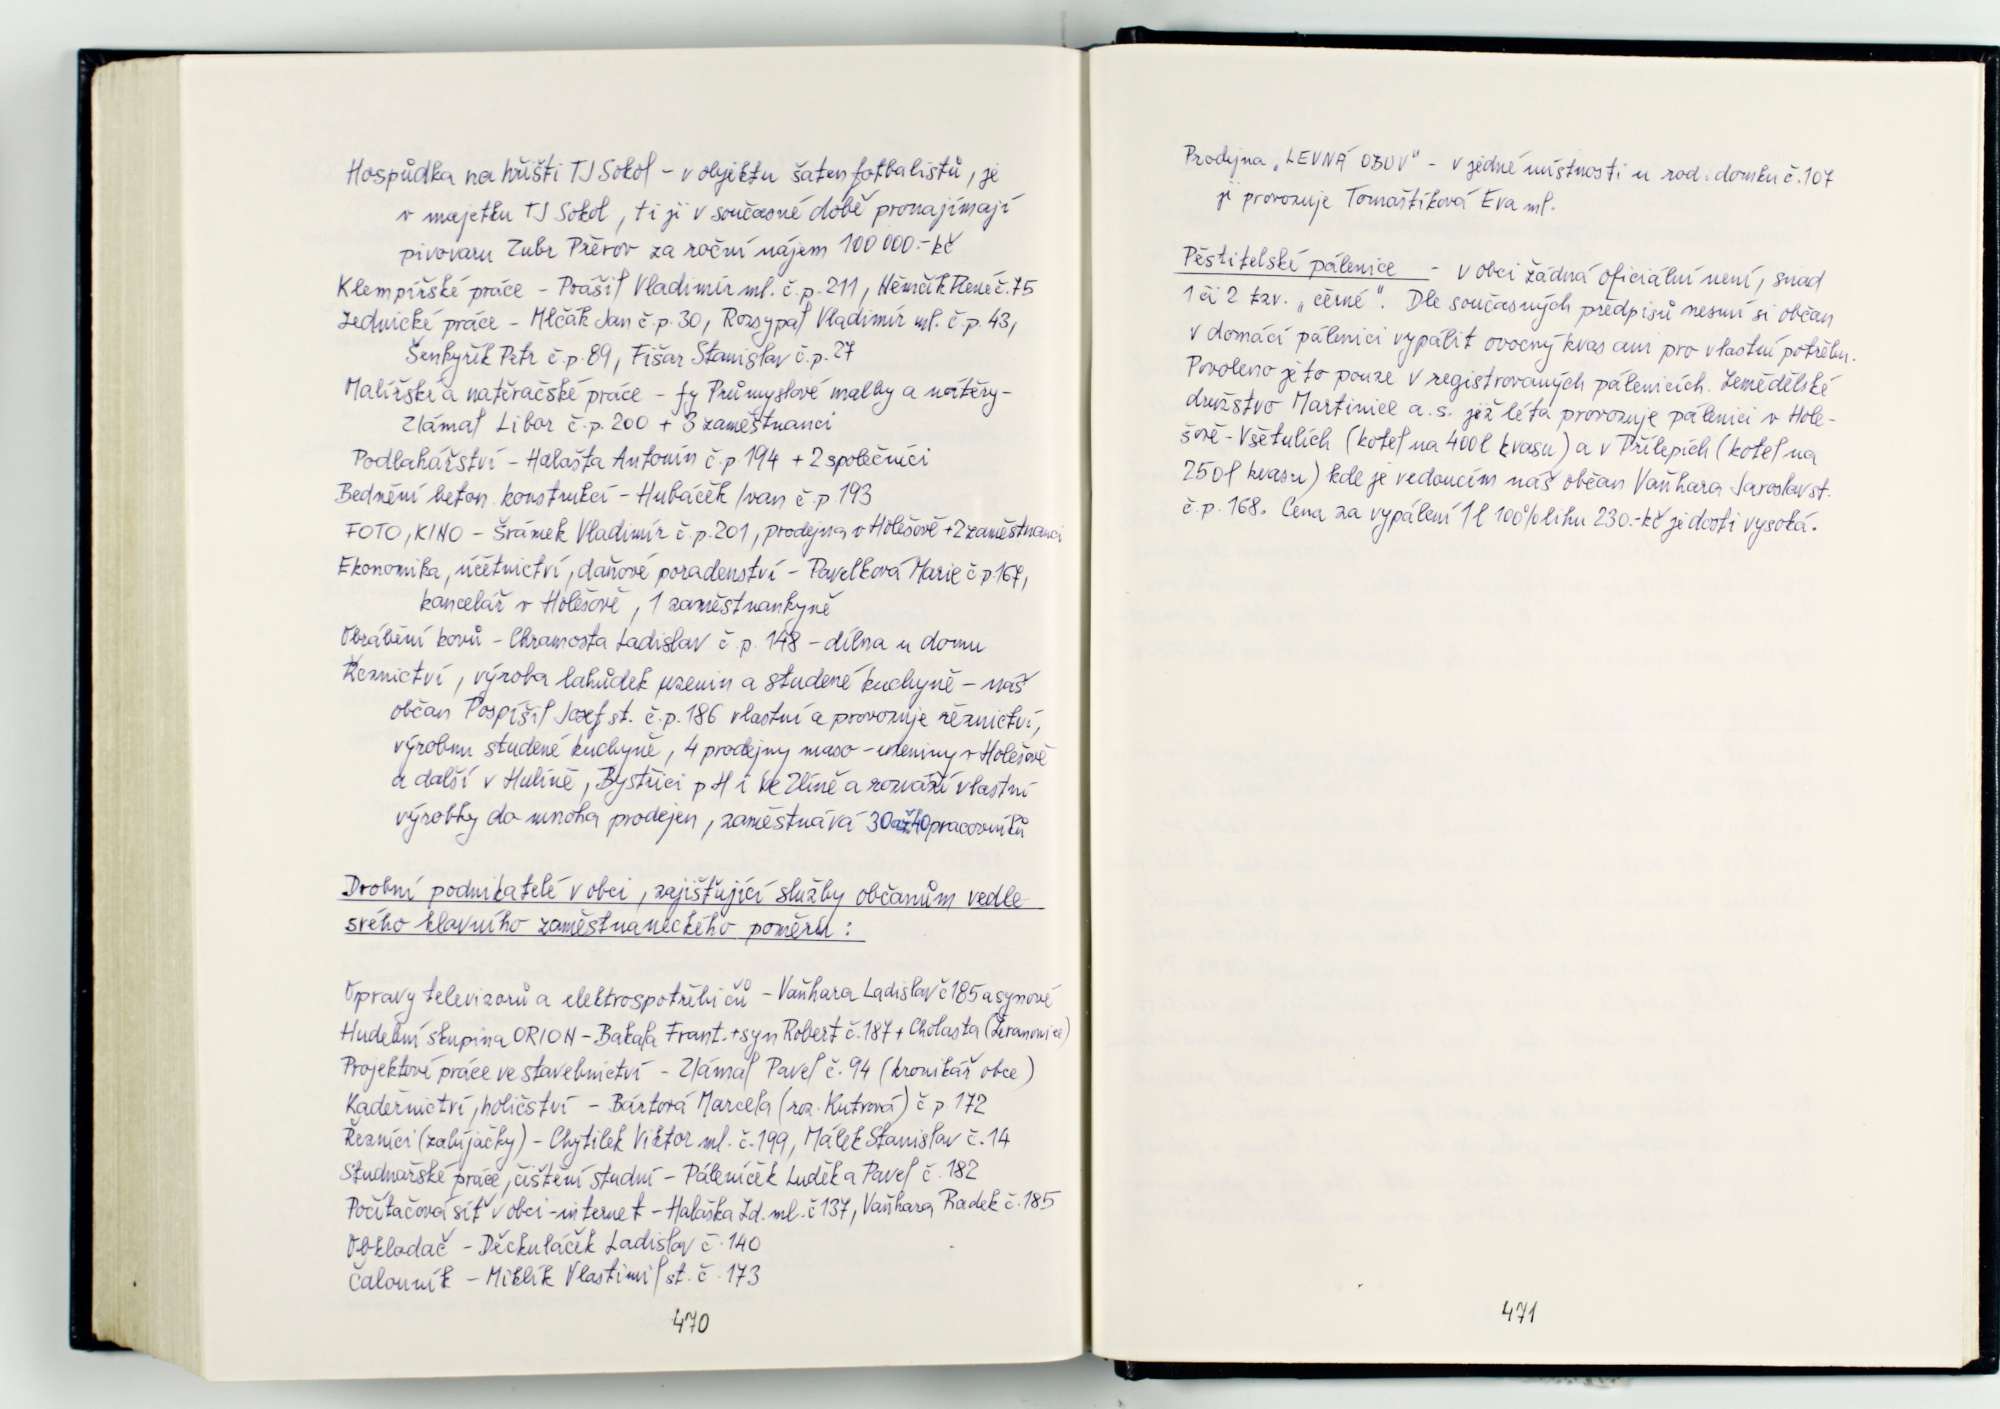 Hospůdka na hřišti TJ Sokol – v objektu šaten fotbalistů, je
v majetku TJ Sokol, ti ji v současné době pronajímají
pivovaru Zubr Přerov za roční nájem 100 000.- kč
Klempířské práce – Prášil Vladimír ml. č.p. 211, Němčík René č. 75
Zednické práce – Mlčák Jan č.p. 30, Rozsypal Vladimír ml. č.p. 43,
Šenkyřík Petr č.p. 89, Fišar Stanislav č.p. 27
Malířské a natěračské práce – fy Průmyslové malby a nátěry –
Zlámal Libor č.p. 200 + 3 zaměstnanci
Podlahářství – Halašta Antonín č.p 194 + 2 společníci
Bednění beton. konstrukcí – Hubáček Ivan č.p 193
FOTO, KINO – Šrámek Vladimír č.p. 201, prodejna v Holešově + 2 zaměstnanci
Ekonomika, účetnictví, daňové poradenství – Pavelková Marie č p 167,
kancelář v Holešově, 1 zaměstnankyně
Obrábění kovů – Chramosta Ladislav č p. 148 – dílna u domu
Řeznictví, výroba lahůdek uzenin a studené kuchyně – náš
občan Pospíšil Josef st. č.p. 186 vlastní a provozuje řeznictví,
výrobnu studené kuchyně, 4 prodejny maso – uzeniny v Holešově
a další v Hulíně, Bystřici p H i ve Zlíně a rozváží vlastní
výrobky do mnoha prodejen, zaměstnává 30 až 40 pracovníků
Drobní podnikatelé v obci, zajišťující služby občanům vedle
svého hlavního zaměstnaneckého poměru :
Opravy televizorů a elektrospotřebičů – Vaňhara Ladislav č 185 a synové
Hudební skupina ORION – Bakala Frant. + syn Robert č. 187 + Cholasta (Žeranovice)
Projektové práce ve stavebnictví – Zlámal Pavel č. 94 (kronikář obce)
Kadeřnictví, holičství – Bártová Marcela (roz. Kutrová) č p. 172
Řezníci (zabijačky) – Chytilek Viktor ml. č. 199, Málek Stanislav č. 14
Studnařské práce, čištění studní – Páleníček Luděk a Pavel č. 182
Počítačová síť v obci – internet – Halaška Zd. ml. č 137, Vaňhara Radek č. 185
Obkladač – Děckuláček Ladislav č. 140
Čalouník – Miklík Vlastimil st. č. 173
470
Prodejna „LEVNÁ OBUV“ – v jedné místnosti u rod. domku č. 107
ji provozuje Tomaštíková Eva ml.
Pěstitelské pálenice – v obci žádná oficiální není, snad
1 či 2 tzv. „černé“. Dle současných předpisů nesmí si občan
v domácí pálenici vypálit ovocný kvas ani pro vlastní potřebu.
Povoleno je to pouze v registrovaných pálenicích. Zemědělské
družstvo Martinice a.s. již léta provozuje pálenici v Hole-
šově – Všetulích (kotel na 400 l kvasu) a v Přílepích (kotel na
250 l kvasu) kde je vedoucím náš občan Vaňhara Jaroslav st.
č.p. 168. Cena za vypálení 1 l 100% lihu 230.- kč je dosti vysoká.
471